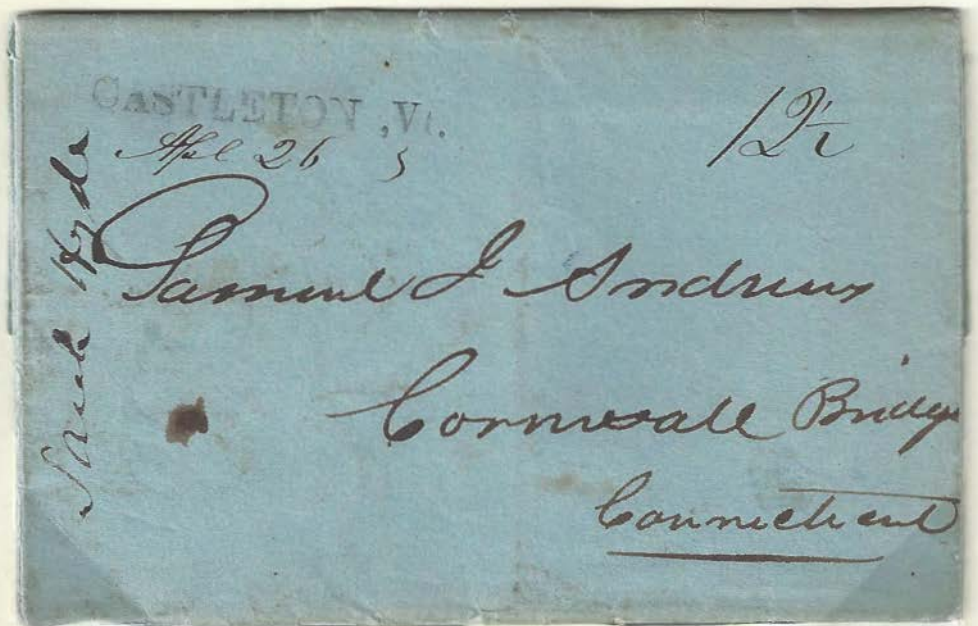 CASTLETON, Vt.
Apl 26 5
12½
Samuel J Andrews
Cornwall Bridge
Connecticut
Hyde